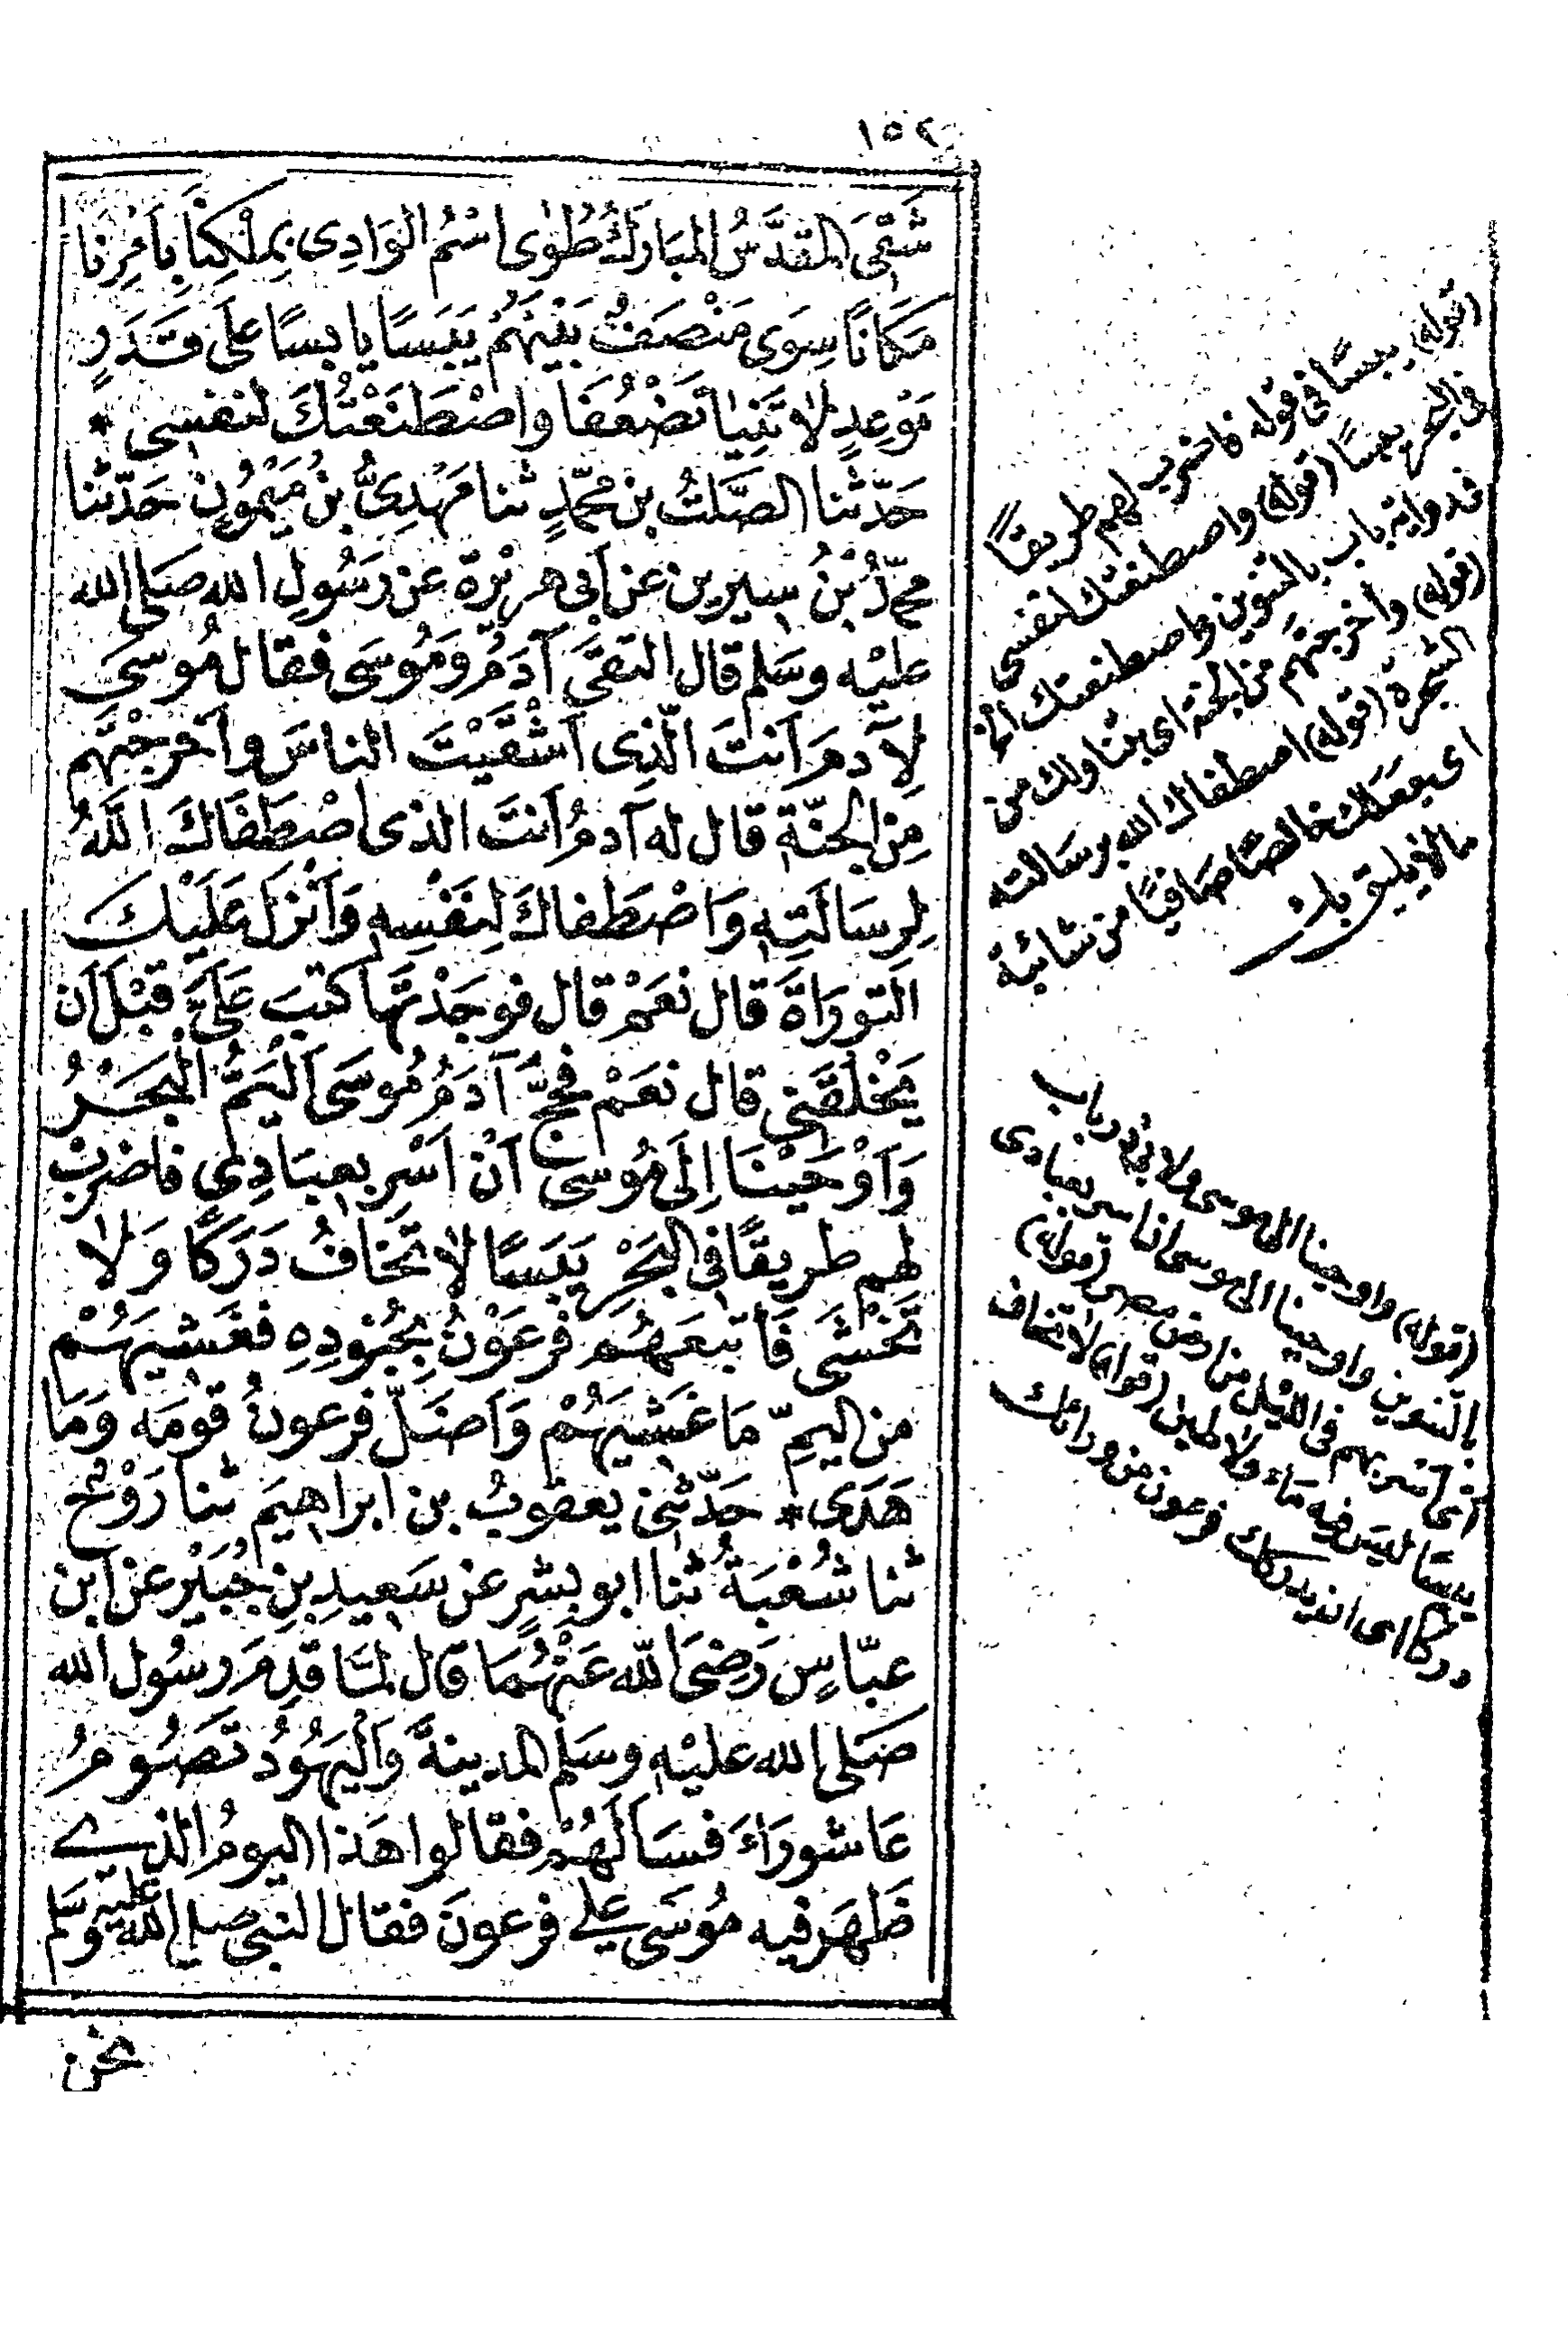 ١٥٢
شَقِىَ المقدَّسُ المبَارَكُ طُوًى اسْمُ الوَادِى بِمِلْكِنَا بِاَمْرِنَا
مَكَانًا سِوًى مَنْصَفٌ بَيْنَهُمْ يَبَسًا يابسًا على قَدَرٍ
مَوْعِدٍ لا تَنِيَا تَضْعُفَا واصْطَنَعْتُكَ لنفسى *
حَدّثنا الصَّلتُ بن محمّدٍ ثنا مَهْدِىُّ بنُ مَيْمُونٍ حَدّثنا
محمّدُ بْنُ سِيرين عن اَبى هريْرة عن رَسُولِ الله صَلى الله
عليْه وسَلم قال التقَى آدَمُ وَمُوسَى فقال مُوسَى
لآدمَ اَنتَ الّذى اَشْقَيْتَ الناسَ واَخرجْتَهم
مِن الجنّة قال له آدمُ اَنتَ الذى اصْطَفَاكَ اللهُ
لِرِسَالَتِهِ وَاصْطَفاكَ لِنَفْسِهِ وَاَنْزَلَ عَلَيْكَ
التورَاةَ قال نعَمْ قال فوجَدْتَها كتبَ عَلَىَّ قبْلَ اَن
يَخْلقَنى قال نعَمْ فحَجَّ آدَمُ مُوسَى اَليَمُّ البَحْرُ
وَاَوْحَيْنَا اِلَى مُوسَى اَنْ اَسْرِ بعِبَادِى فاضرِبْ
لهم طريقًا فى البَحْرِ يَبَسًا لا تَخَافُ دَرَكًا وَلا
تَخْشَى فَاَتبعَهُم فِرعَوْنُ بِجُنودِهِ فغَشيَهُمْ
من اليمِّ مَا غَشيَهُمْ وَاَضَلّ فِرعونُ قومَه وَمَا
هَدَى * حَدّثنى يعقوبُ بن ابراهيمَ ثنا رَوْحٌ
ثنا شُعْبَةُ ثنا ابو بشرٍ عن سَعيدِ بنِ جُبَيْرٍ عن ابن
عبّاسٍ رَضىَ الله عَنْهُمَا قال لمّا قدِمَ رسُول الله
صَلى الله عليْهِ وسَلم المدينةَ وَاليَهُودُ تَصُومُ
عَاشورَاءَ فسَاَلَهُمْ فقالوا هَذا اليومُ الذى
ظَهَرَ فيه مُوسَى على فرعونَ فقال النبى صلى الله عليه وسَلم
نحن
(قوله) يبسًا فى قوله فاضرب لهم طريقاً
فى البحر يبسًا (قوله) واصطنعتك لنفسى
باب بالتنوين واصطنعتك الخ
(قوله) واخرجتهم من الجنة اى بتناولك من
الشجرة (قوله) اصطفاك الله برسالته
اى جعلك خالصًا صافيًا من شائبة
ما لا يليق بك
(قوله) واوحينا الى موسى ولابى ذر باب
بالتنوين واوحينا الى موسى ان اسر بعبادى
اى اسر بهم فى الليل من ارض مصر (قوله)
يبسًا ليس فيه ماء ولا طين (قوله) لا تخاف
دركا اى ان يدركك فرعون من ورائك